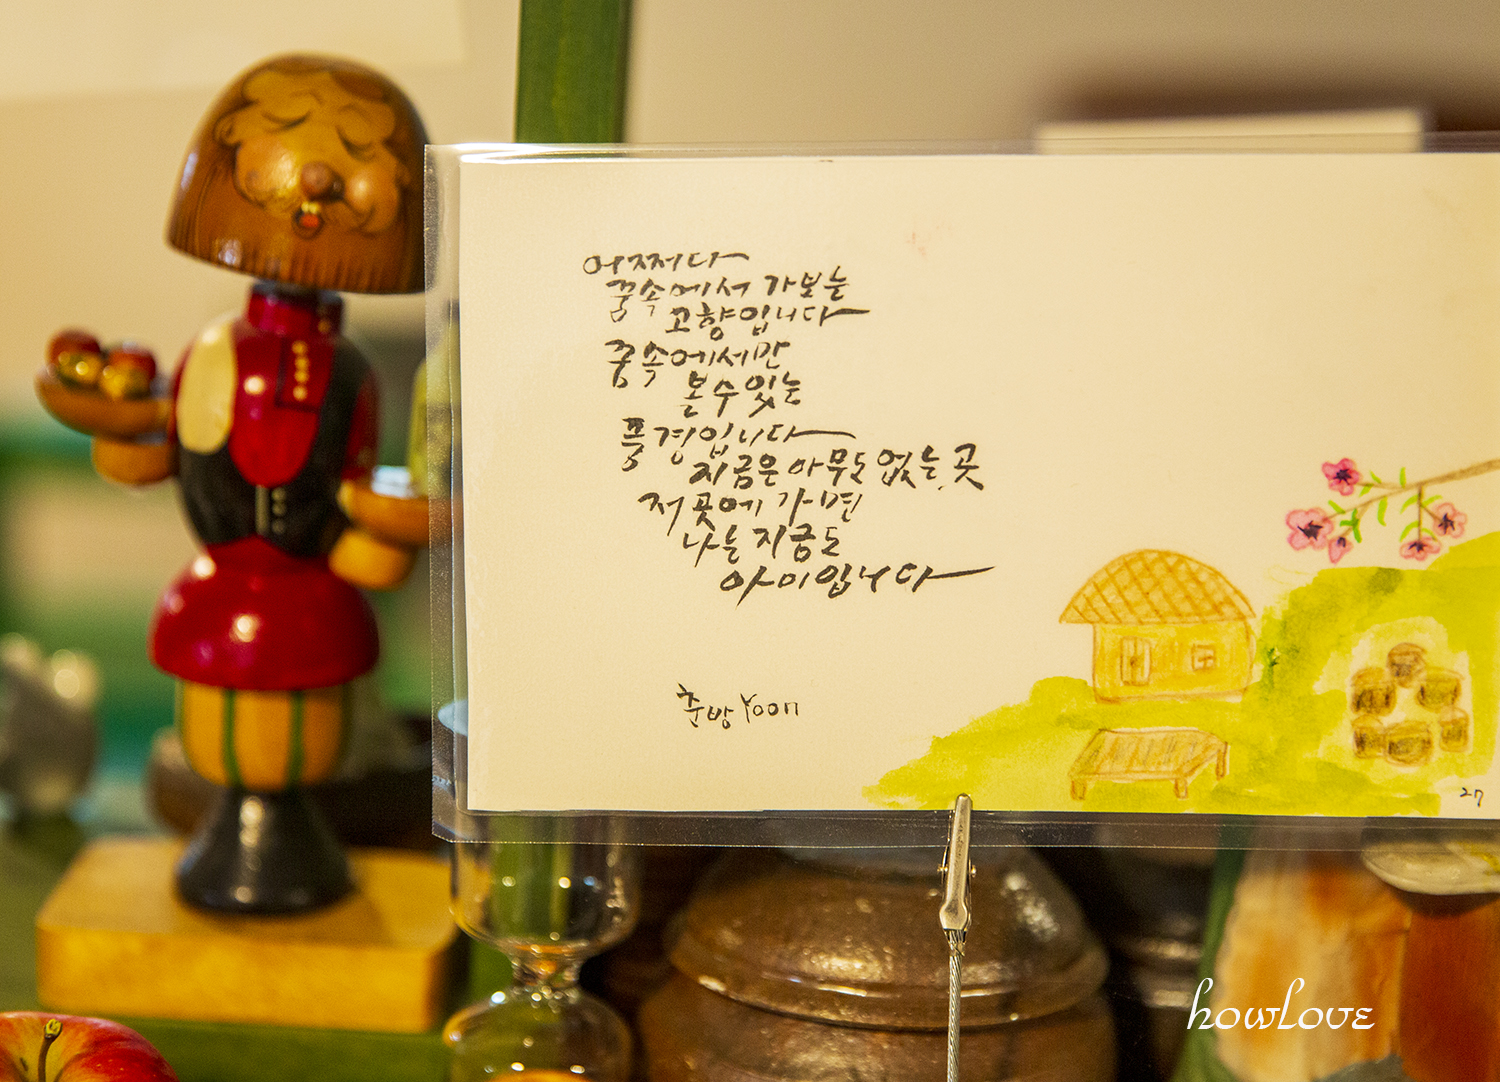 어쩌다
꿈속에서 가보는
고향입니다
꿈속에서만
볼 수 있는
풍경입니다
지금은 아무도 없는 곳
저 곳에 가면
나는 지금도
아미입니다
춘방 Yoon
27
howlove